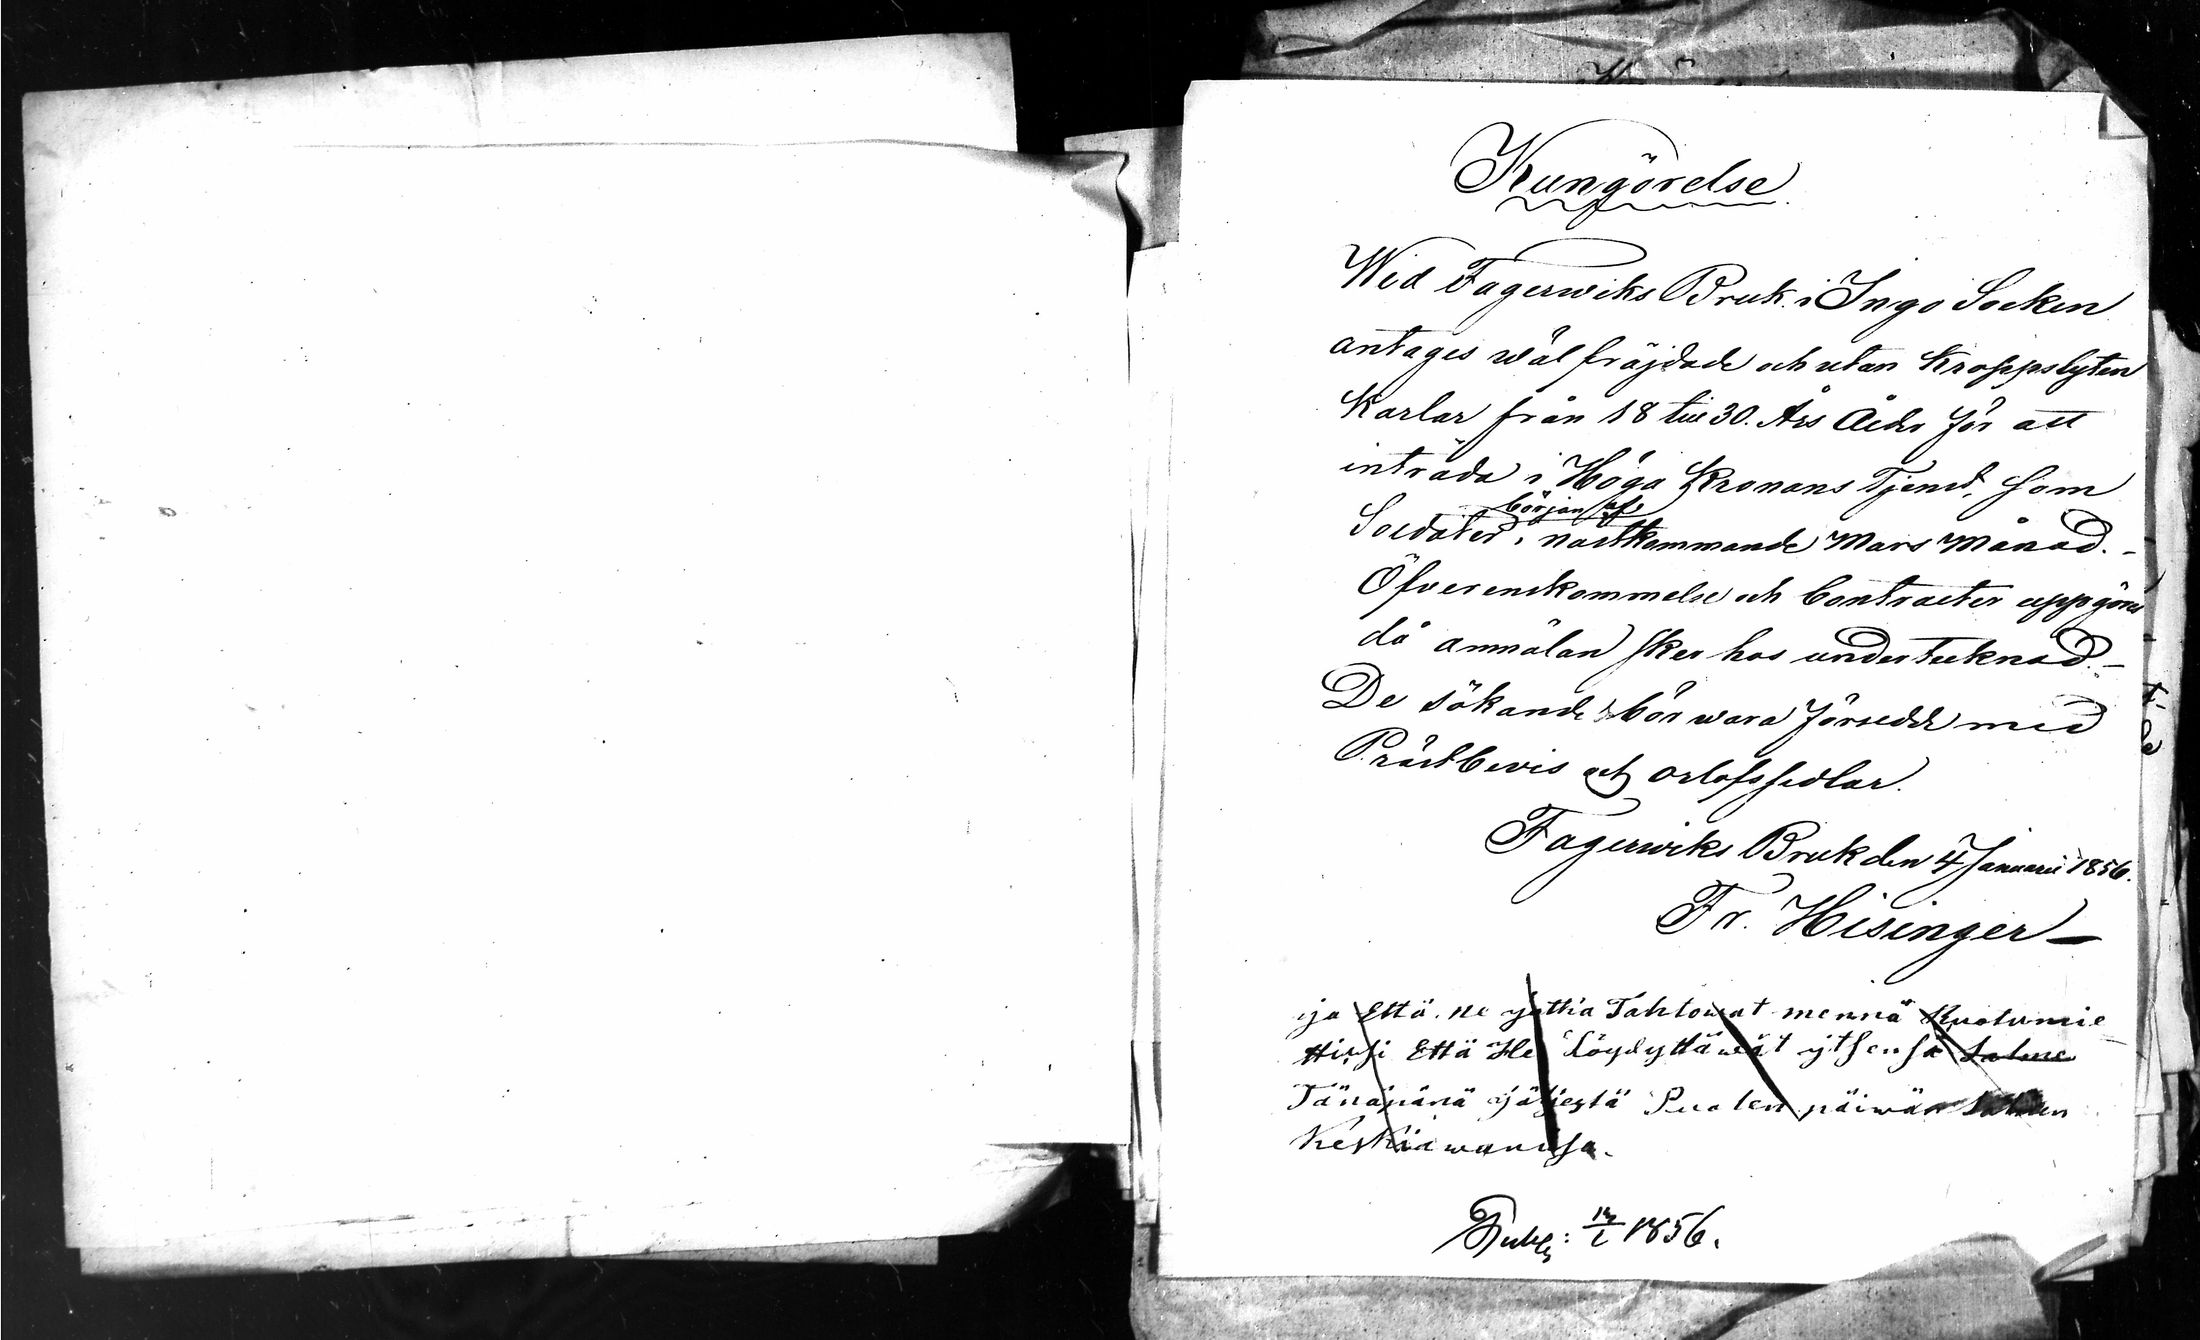 Kungörelse
Wid Fagerwiks Bruk i Ingo Socken
antages wäl fräjdade och utan Kroppslyten
Karlar från 18 till 30. Års Ålder för att
inträda i Höga Kronans Tjenst, som
början af
Soldater, i nästkommande Mars Månad. -
Öfverenskommelse och Contracter uppgöres
då anmälan sker hos undertecknad. -
De sökande bör wara försedde med
Prästbevis och orlofssedlar.
Fagerwiks Bruk den 4 Januarii 1856.
Fr. Hisinger
ja Että ne jotka Tahtowat mennä
Että He Löydyttäwät ytsensä
Tänäpänä jäljestä Puolen päiwän
Keskiawanisa.
Publ: 13/1 1856.